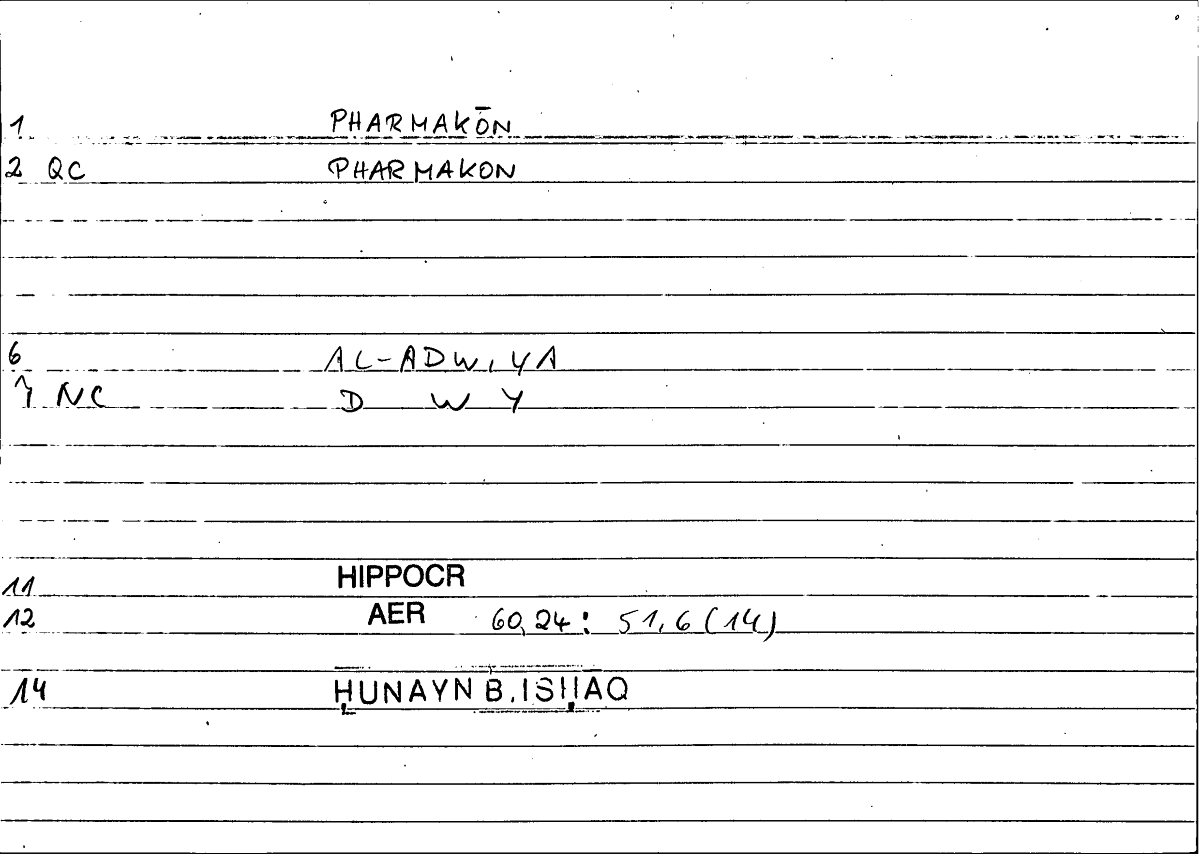 1 PHARMAKŌN
2 QC PHARMAKON
6 AL-ADWIYA
7 NC D W Y
11 HIPPOCR
12 AER 60,24: 51,6 (14)
14 ḤUNAYN B. ISḤĀQ